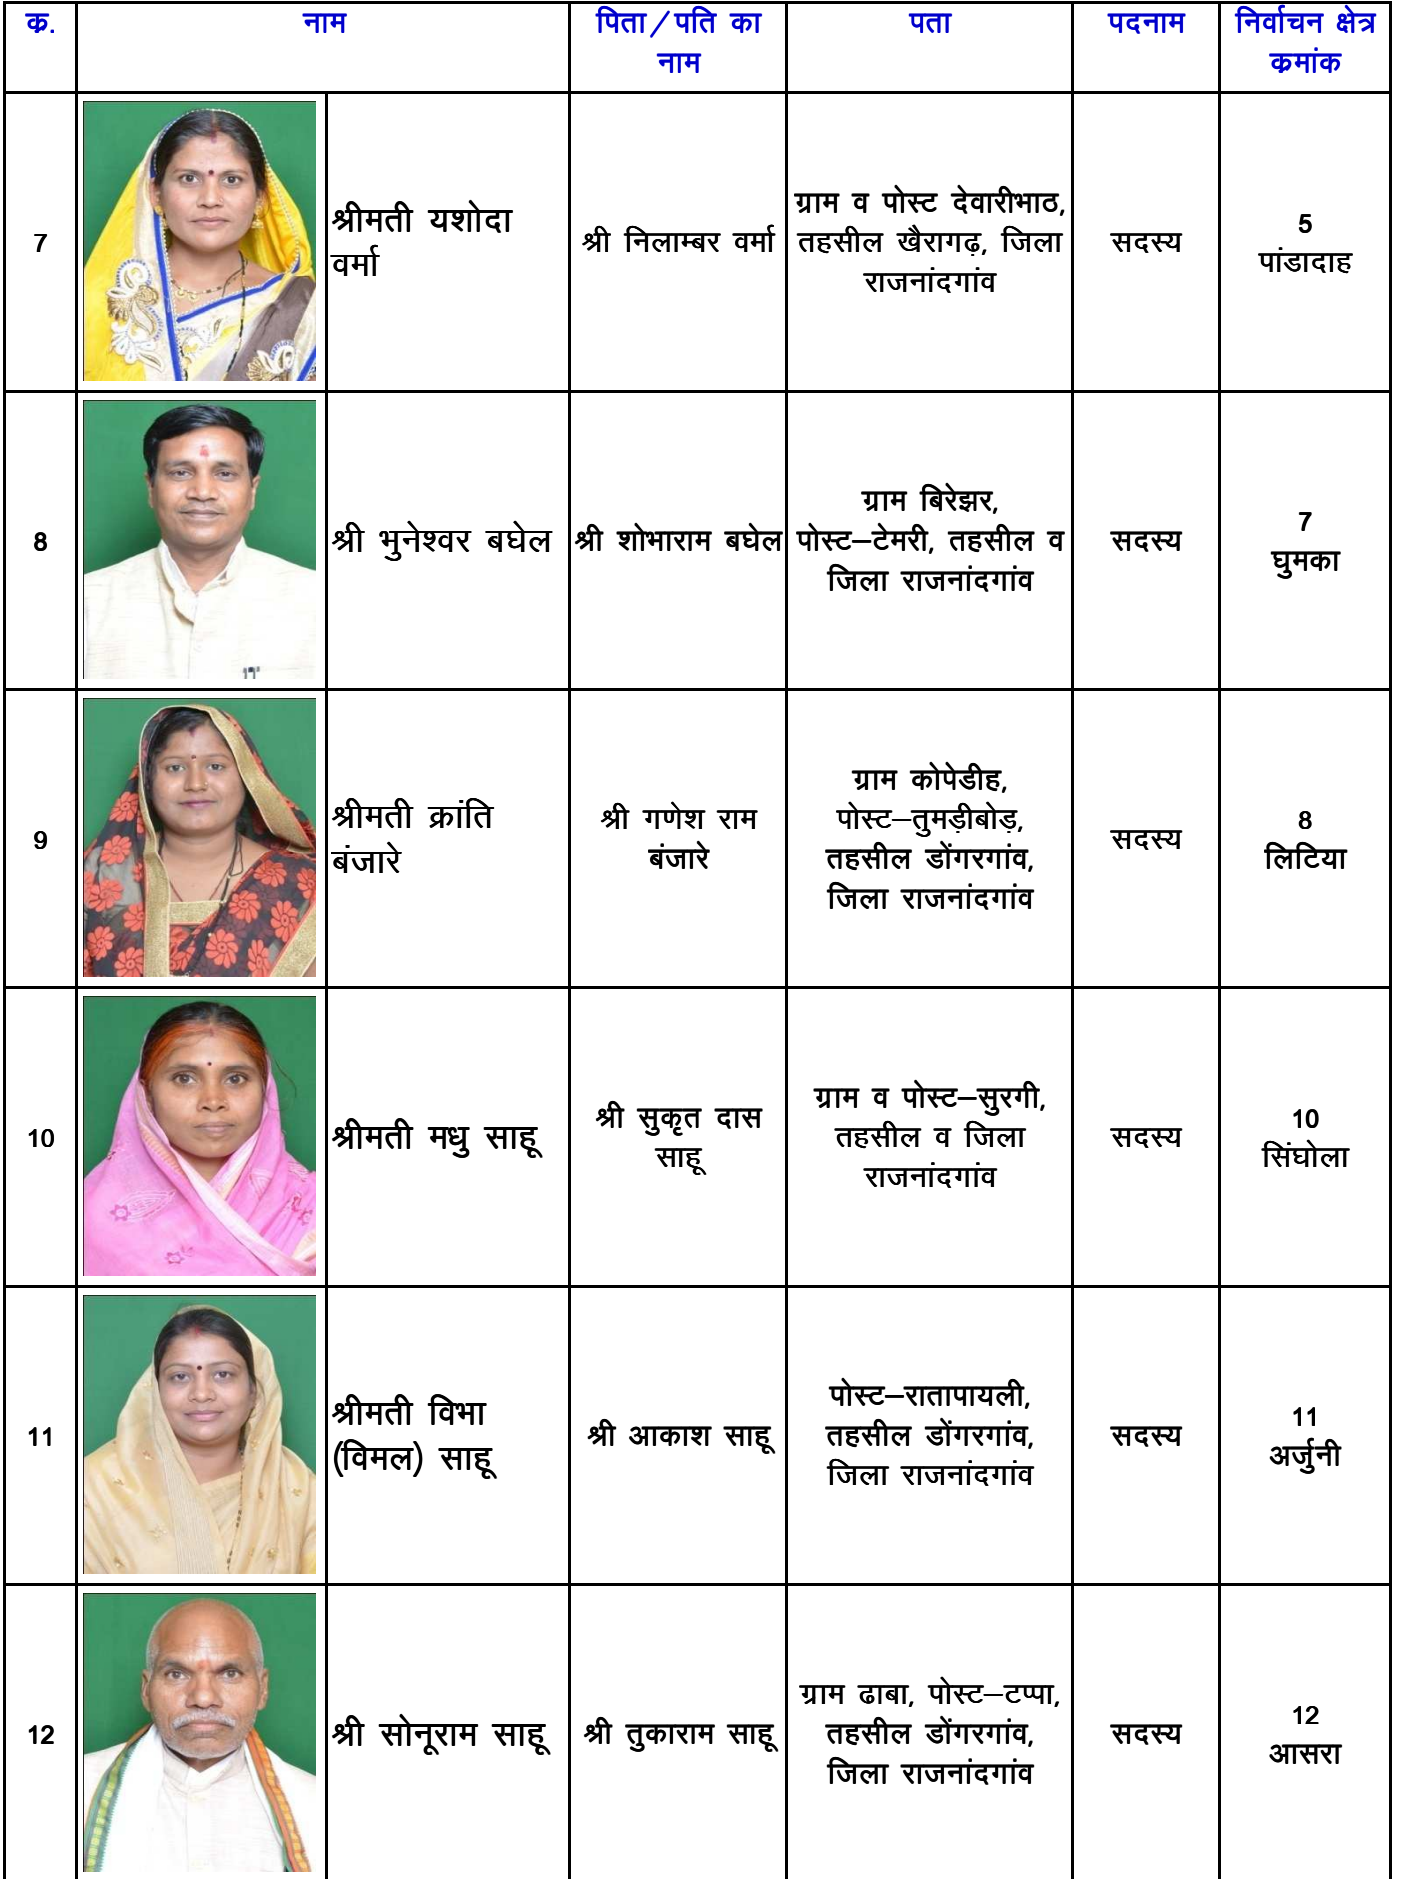 क्र. नाम पिता/पति का नाम पता पदनाम निर्वाचन क्षेत्र क्रमांक
7
श्रीमती यशोदा
वर्मा
श्री निलाम्बर वर्मा
ग्राम व पोस्ट देवारीभाठ,
तहसील खैरागढ़, जिला
राजनांदगांव
सदस्य
5
पांडादाह
8
श्री भुनेश्वर बघेल
श्री शोभाराम बघेल
ग्राम बिरेझर,
पोस्ट–टेमरी, तहसील व
जिला राजनांदगांव
सदस्य
7
घुमका
9
श्रीमती क्रांति
बंजारे
श्री गणेश राम
बंजारे
ग्राम कोपेडीह,
पोस्ट–तुमड़ीबोड़,
तहसील डोंगरगांव,
जिला राजनांदगांव
सदस्य
8
लिटिया
10
श्रीमती मधु साहू
श्री सुकृत दास
साहू
ग्राम व पोस्ट–सुरगी,
तहसील व जिला
राजनांदगांव
सदस्य
10
सिंघोला
11
श्रीमती विभा
(विमल) साहू
श्री आकाश साहू
पोस्ट–रातापायली,
तहसील डोंगरगांव,
जिला राजनांदगांव
सदस्य
11
अर्जुनी
12
श्री सोनूराम साहू
श्री तुकाराम साहू
ग्राम ढाबा, पोस्ट–टप्पा,
तहसील डोंगरगांव,
जिला राजनांदगांव
सदस्य
12
आसरा